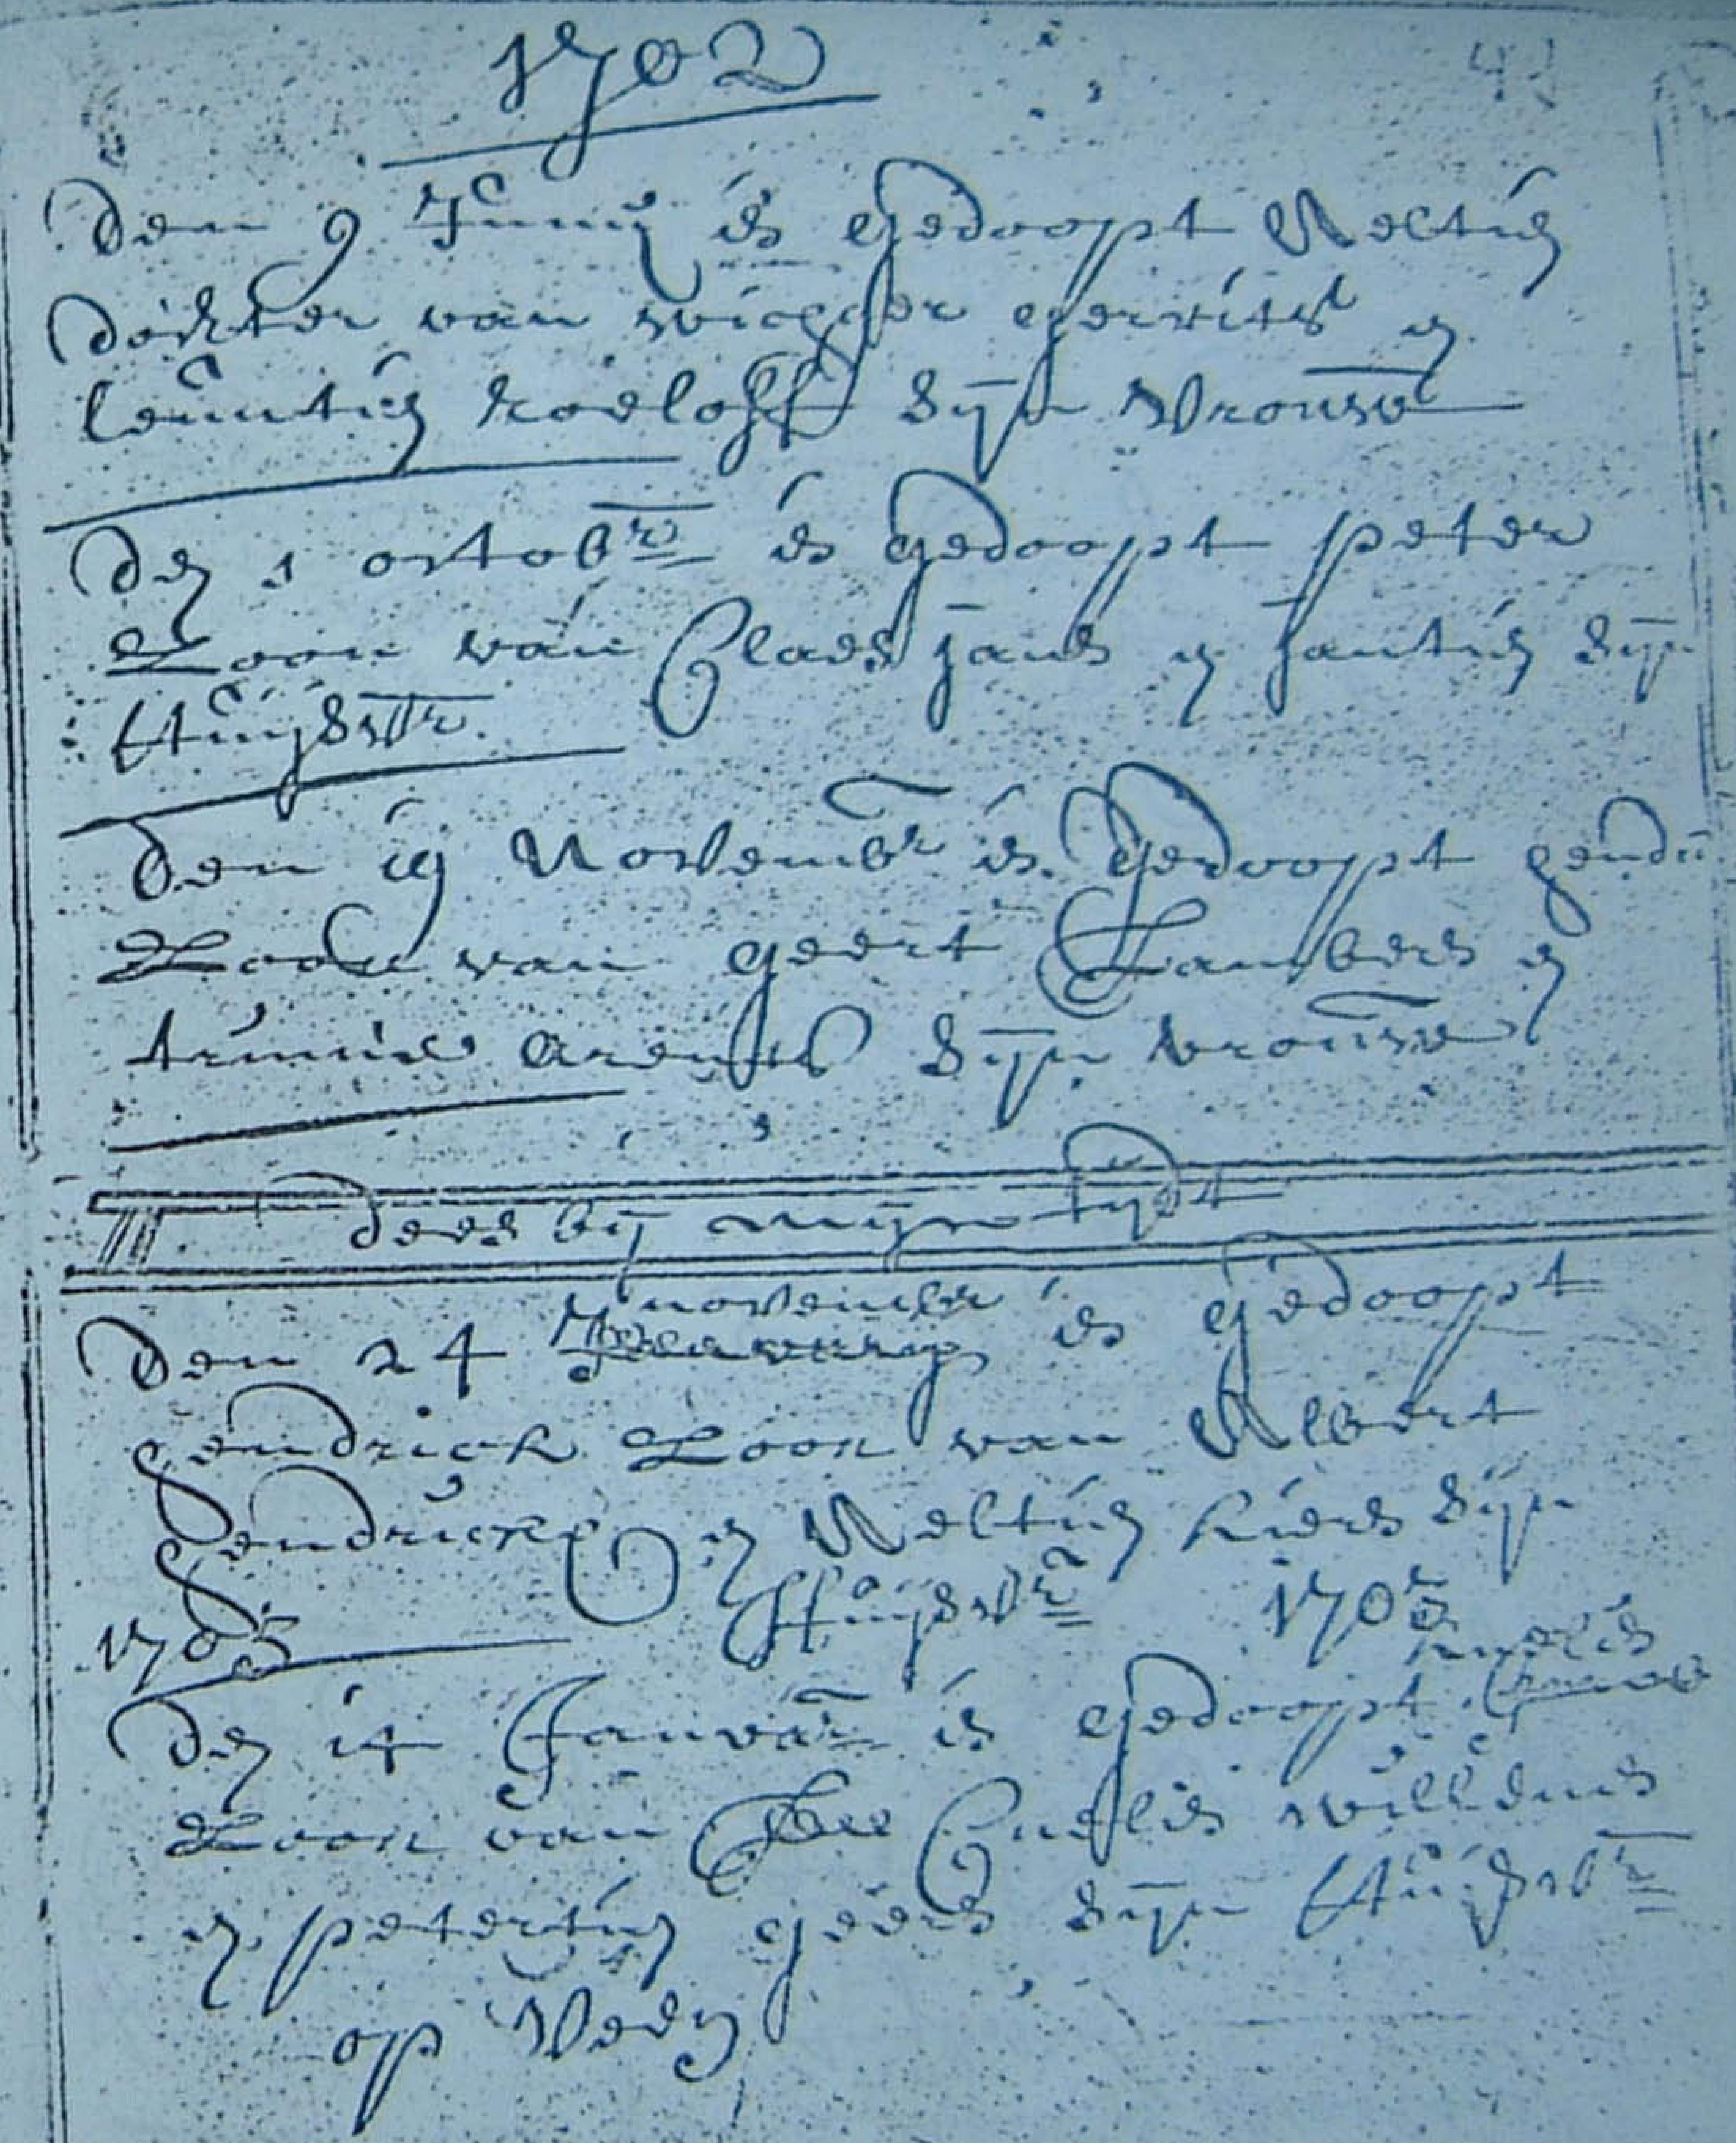 1702
41
Den 9 Junij is gedoopt Aeltien
dochter van wiegger gerrits en
leuntien Roeloffs sijn Vrouwe
Den 1 octobr is gedoopt peter
Zoon van Claes jans en jantien sijn
Huijsvr.
Den 19 Novembr is gedoopt hendri
Zoon van geert Lambers en
arents sijn vrouwe
dees bij mijn tijdt
november
Den 24 is gedoopt
hendrick Zoon van Albert
hendricks en Aeltien hiers sijn
Huijsvr 1703
1703
Den 14 Januar is gedoopt
Zoon van Cnelis willems
en petertien geers sijn Huijsvr
op Veen